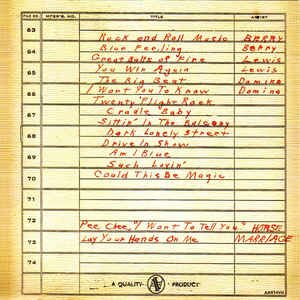 FILE NO. MFGR'S. NO. TITLE ARTIST
63
Rock and Roll Music BERRY
Blue Feeling Berry
64 Great Balls of Fire Lewis
You Win Again Lewis
65 The Big Beat Domino
I Want You To Know Domino
66 Twenty Flight Rock
Cradle Baby
67 Sittin' In The Balcony
Dark Lonely Street
68 Drive In Show
Am I Blue
69 Such Lovin'
70 Could This Be Magic
71
72 Pee Chee, "I Want To Tell You"
73 Lay Your Hands On Me MARRIAGE
74
A QUALITY PRODUCT